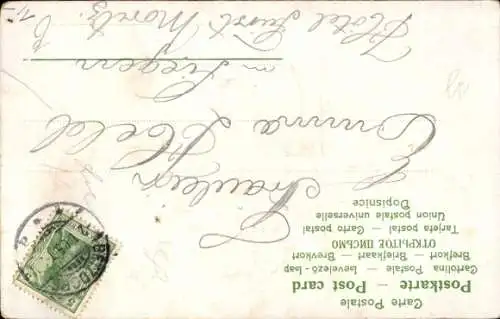 Carte Postale
Postkarte — Post card
Cartolina Postale — Levelező-Lap
Briefkort — Briefkaart — Brevkort
ОТКРЫТОЕ ПИСЬМО
Tarjeta postal — Carte postal
Union postale universelle
Dopisnice
Fräulein
Emma Held
in Liegern
Hotel Fürst Moritz.
5